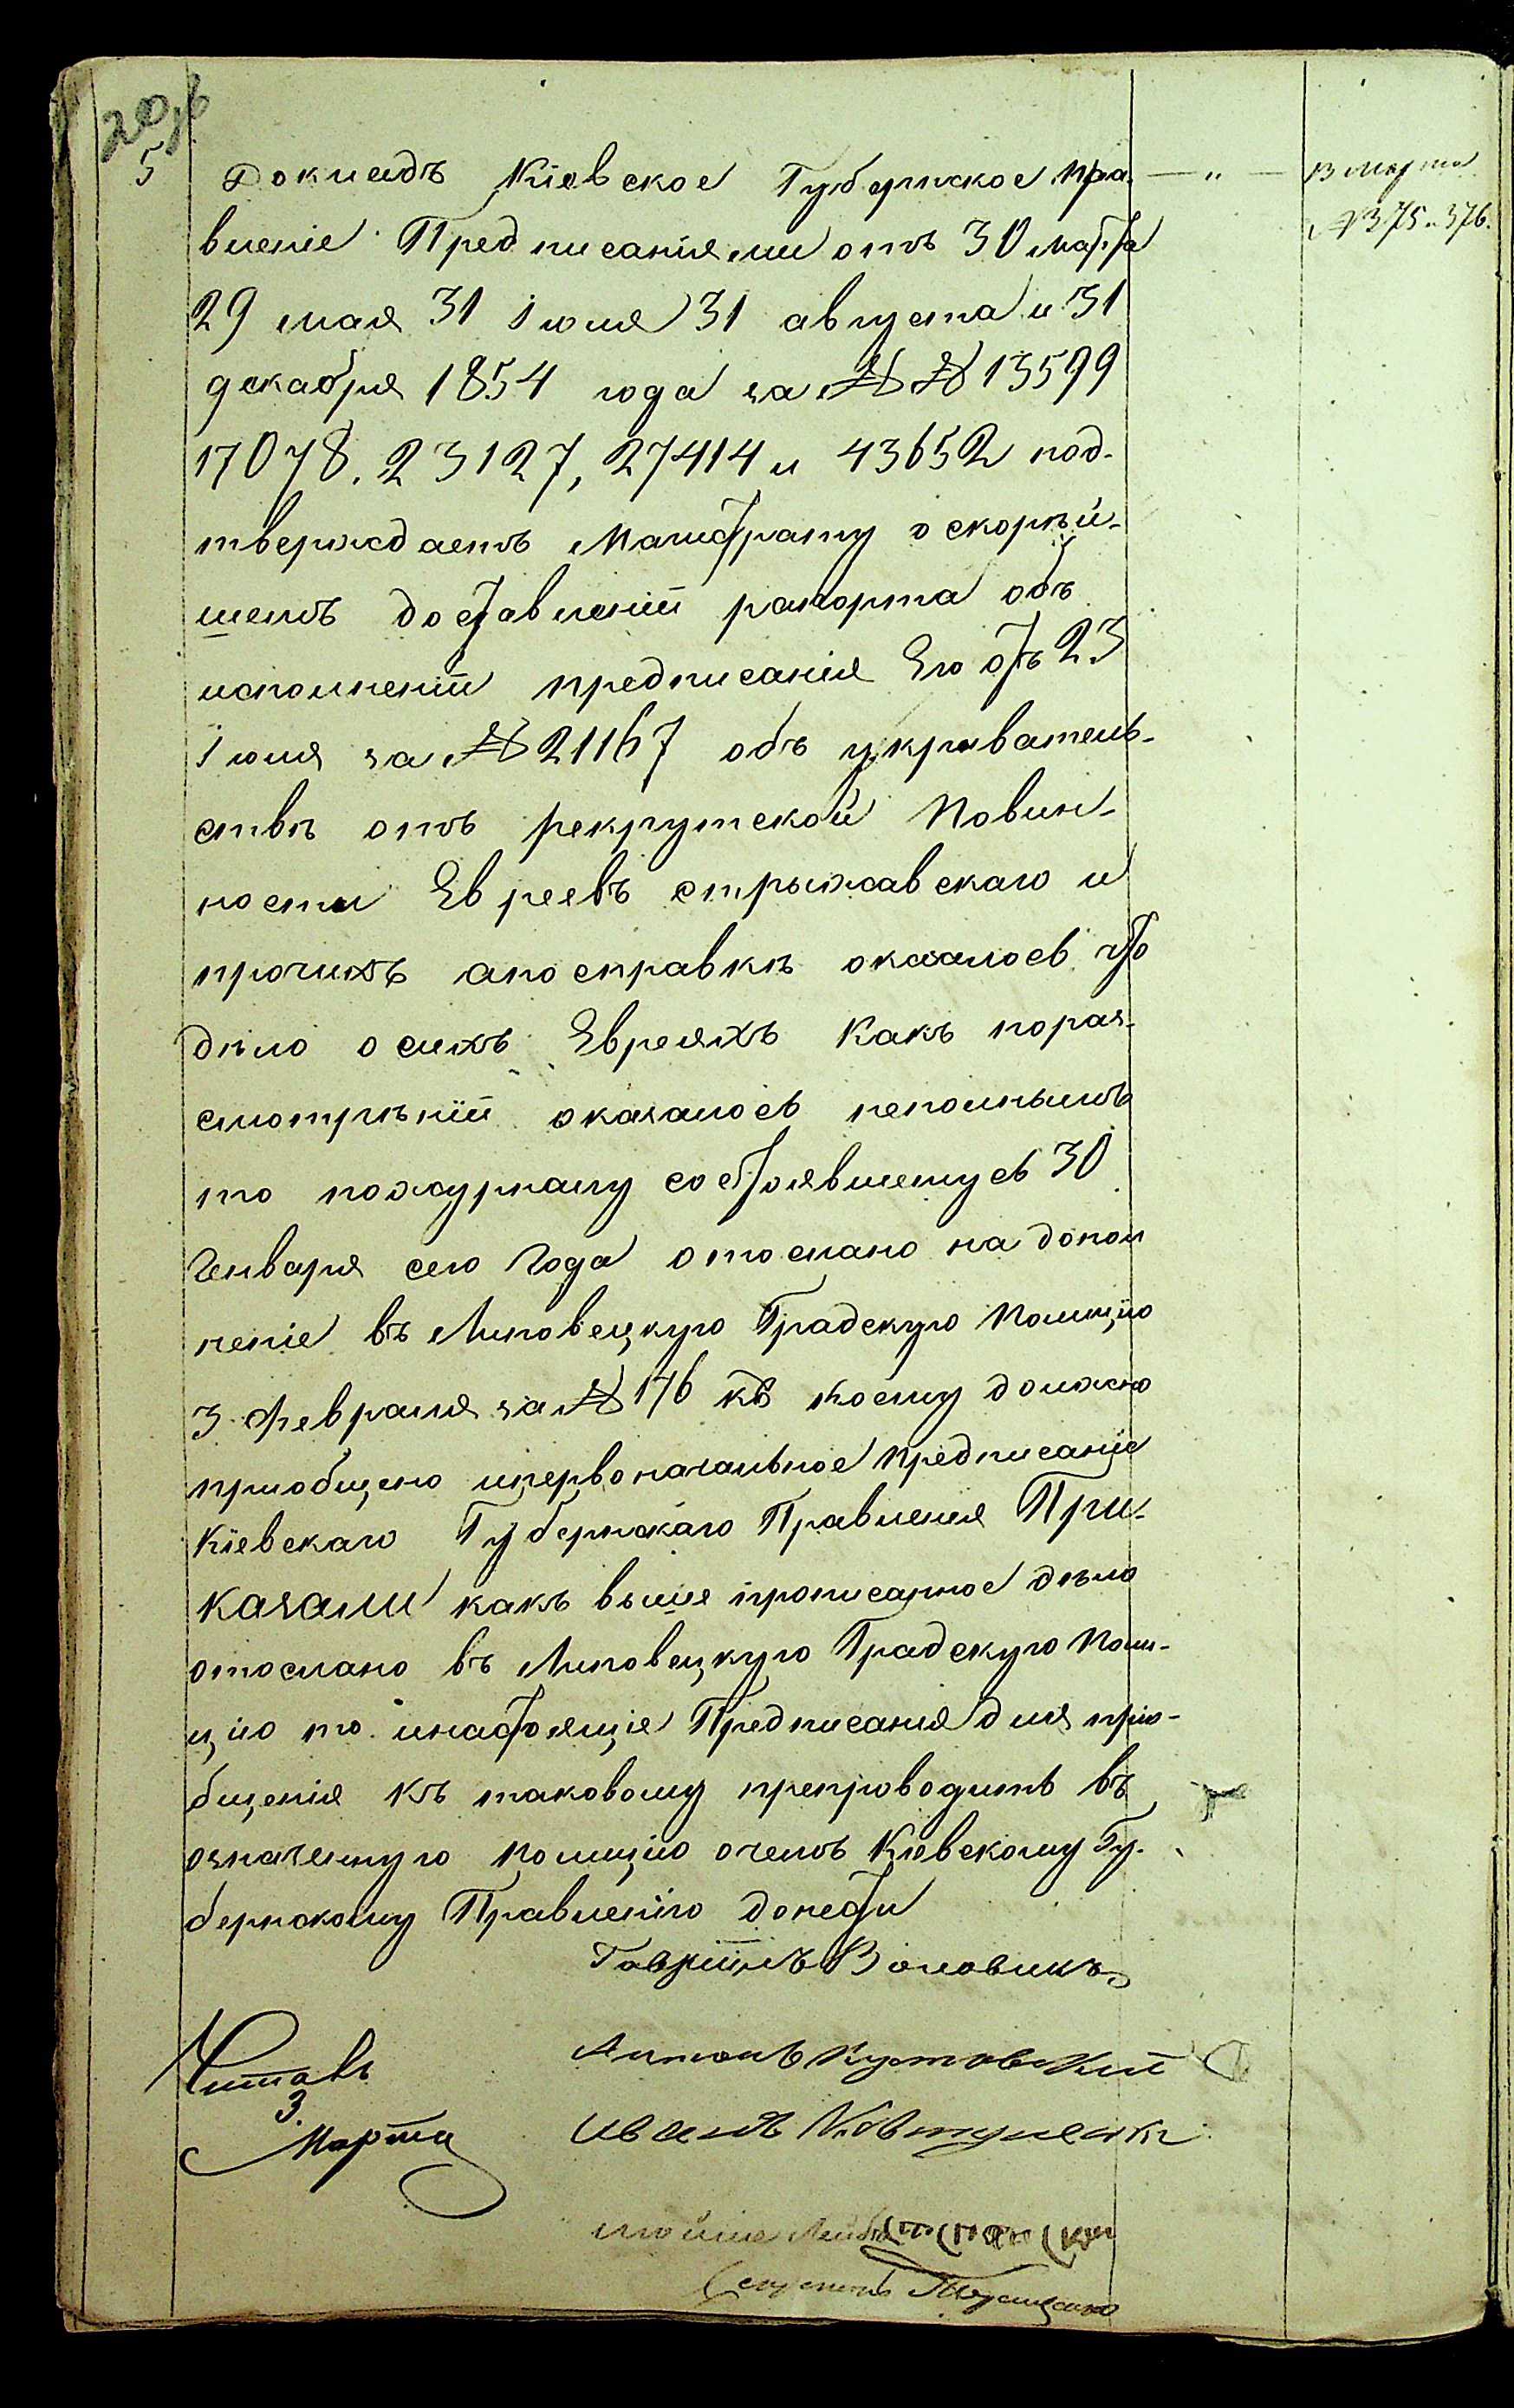 5 Докладъ Кіевское Губернское Пра- — „ — 13 Марта
№ 375 и 376.
вленіе Предписаніями отъ 30 марта
29 мая 31 Іюля 31 августа и 31
декабря 1854 года за №№ 13599
17078, 23127, 27414 и 43652 под-
тверждаетъ Магистрату о скорѣй-
шемъ доставленіи рапорта объ
исполненіи предписанія Его отъ 23
Іюля за № 21167 объ укриватель-
ствѣ отъ рекрутской Повин-
ности Евреевъ стрыжавскаго и
прочихъ апосправкѣ оказалось что
дѣло осихъ Евреяхъ Какъ пораз-
смотрѣніи оказалось неполнымъ
то пожурналу состоявшемусь 30
Генваря сего Года отослано на допол
неніе въ Липовецкую Градскую Полицію
3 февраля за № 176 къ коему должно
пріобщено ипервоначальное предписаніе
Кіевскаго Губернскаго Правленія При-
казали какъ выше прописанное дѣло
отослано въ Липовецкую Градскую Поли-
цію то инастоящіе Предписанія для пріо-
бщенія къ таковому препроводить въ
означенную полицію очемъ Кіевскому Гу-
бернскому Правленію донести
Гавріилъ Воловикъ
Читалъ
Антонъ Кутовскій
3
Марта
Иванъ Ковтуненко
мойше Лейба
Секретарь